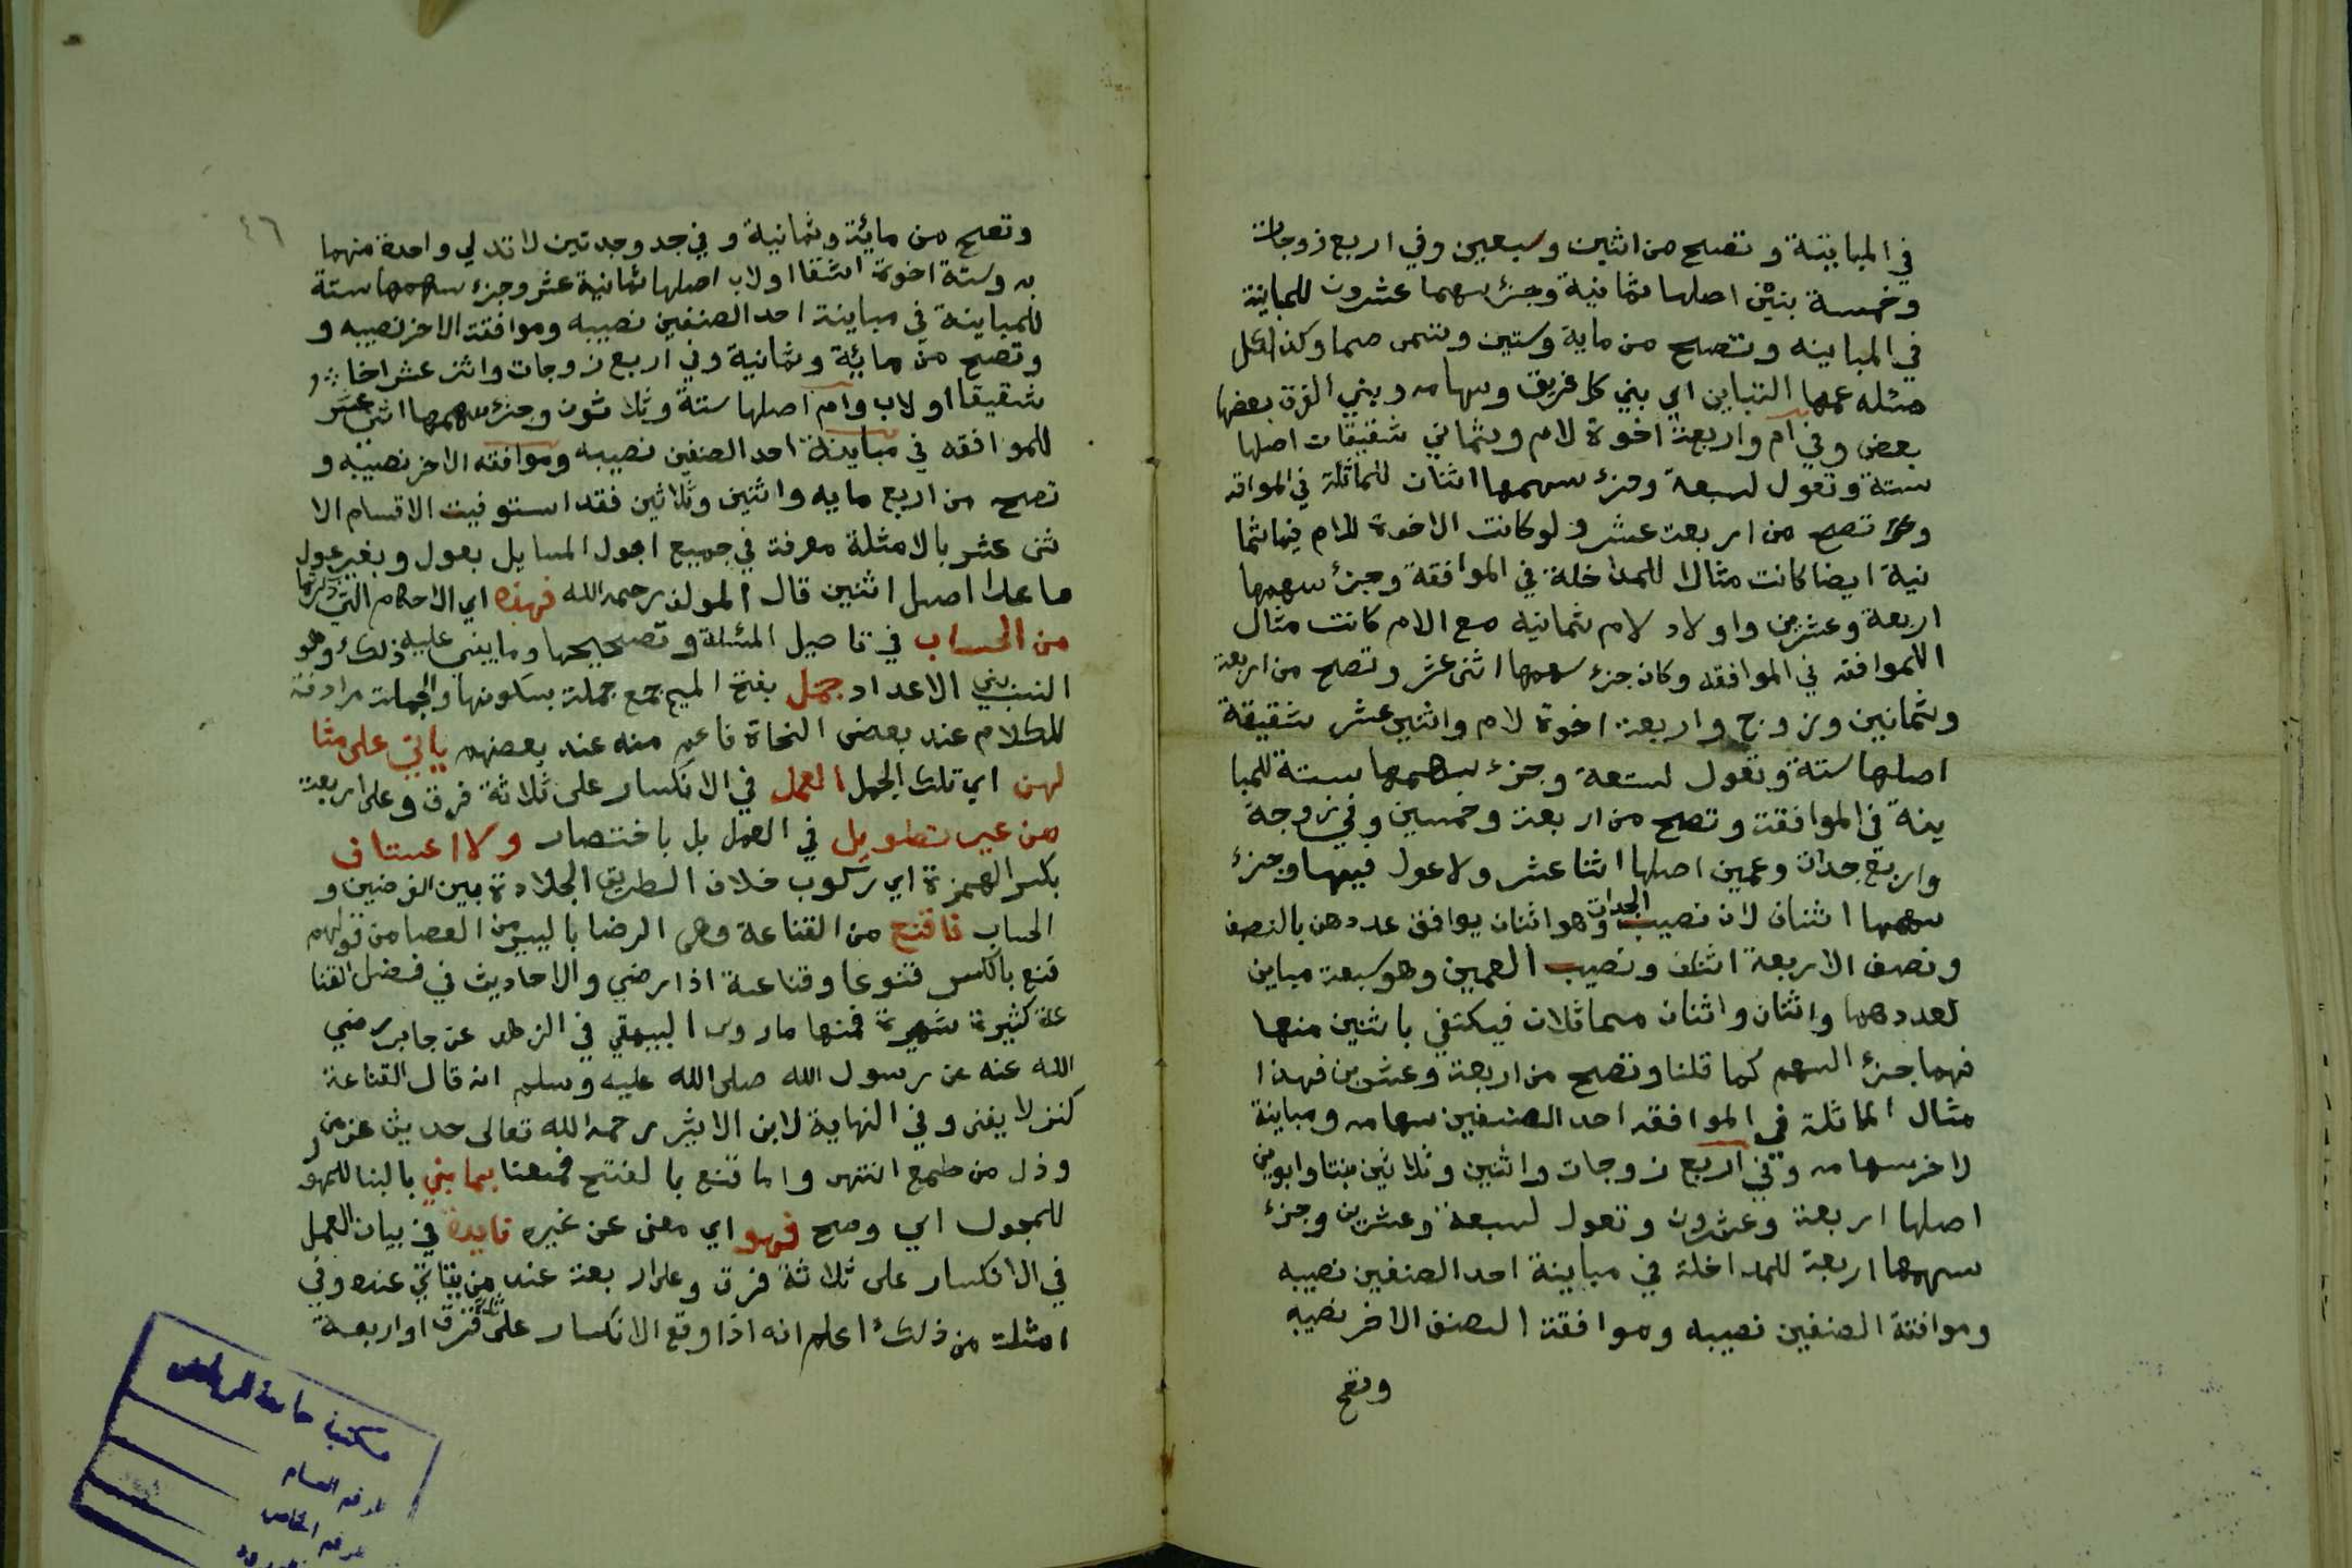 في المباينة وتصح من اثنين وسبعين وفي اربع زوجات
وخمسة بنين اصلها ثمانية وجزء سهمها عشرون للمباينة
في المباينه وتصح من ماية وستين وتسمى صما وكذا كل
مسئله عمها التباين اي بين كل فريق وسهامه وبين الفرق بعضها
بعض وفي ام واربعة اخوة لام وثماني شقيقات اصلها
ستة وتعول لسبعة وجزء سهمها اثنان للماثلة في الموافقه
وتصح من اربعة عشر ولو كانت الاخوة للام فيها ثما
نية ايضا كانت مثالا للمداخلة في الموافقة وجزء سهمها
اربعة وعشرين واولاد لام ثمانيه مع الام كانت مثال
الموافقه في الموافقه وكان جزء سهمها اثنى عشر وتصح من اربعة
وثمانين وزوج واربعة اخوة لام واثنين عشر شقيقة
اصلها ستة وتعول لتسعة وجزء سهمها ستة للمبا
ينة في الموافقة وتصح من اربعة وخمسين وفي زوجة
واربع جدات وعمين اصلها اثنا عشر ولا عول فيها وجزء
سهمها اثنان لان نصيب الجدات وهو اثنان يوافق عددهن بالنصف
ونصف الاربعة اثنان ونصيب العمين وهو سبعة مباين
لعددهما واثنان واثنان متماثلان فيكتفي باثنين منها
فهما جزء السهم كما قلنا وتصح من اربعة وعشرين فهذا
مثال المماثلة في الموافقه احد الصنفين سهامه ومباينة
لاخر سهامه وفي اربع زوجات واثنين وثلاثين بنتا وابوين
اصلها اربعة وعشرون وتعول لسبعة وعشرين وجزء
سهمها اربعة للمداخلة في مباينة احد الصنفين نصيبه
وموافقة الصنفين نصيبه وموافقة الصنف الاخر نصيبه
وتصح
٤٦
وتصح من مائة وثمانية وفي جد وجدتين لا تدلي واحدة منهما
به وستة اخوة اشقا او لاب اصلها ثمانية عشر وجزء سهمها ستة
للمباينة في مباينة احد الصنفين نصيبه وموافقة الاخر نصيبه و
وتصح من مائة وثمانية وفي اربع زوجات واثنى عشر اخا
شقيقا او لاب وام اصلها ستة وثلاثون وجزء سهمها اثنى عشر
للموافقه في مباينة احد الصنفين نصيبه وموافقه الاخر نصيبه و
تصح من اربع مايه واثنين وثلاثين فقد استوفيت الاقسام الا
ثنى عشر بالامثلة مفرقة في جميع اصول المسايل بعول وبغير عول
ما عدا اصل اثنين قال المولف رحمه الله فهذه اي الاحكام التي ذكرتها
من الحساب في تاصيل المسئلة وتصحيحها وما يبنى عليه ذلك وهو
النسب بين الاعداد جمل بفتح الميم جمع جملة بسكونها والجملة مرادفة
للكلام عند بعض النحاة فاعم منه عند بعضهم ياتي على مثا
لهن اي تلك الجمل العمل في الانكسار على ثلاثة فرق وعلى اربعة
من غير تطويل في العمل بل باختصار ولا اعتساف
بكسر الهمزة اي ركوب خلاف الطريق الجلادة بين الفرضين و
الحساب فاقنع من القناعة وهي الرضا باليسير من العطا من قولهم
قنع بالكسر قنوعا وقناعة اذا رضي والاحاديث في فضل القنا
عة كثيرة شهيرة فمنها ما روى البيهقي في الزهد عن جابر رضي
الله عنه عن رسول الله صلى الله عليه وسلم انه قال القناعة
كنز لا يفنى وفي النهاية لابن الاثير رحمه الله تعالى حديث عز من
وذل من طمع انتهى واما قنع بالفتح فمعنا بما بين بالبنا للمهو
للمجهول اي وضح فهو اي معنى عن غيره فايدة في بيان العمل
في الانكسار على ثلاثة فرق وعلى اربعة عند من يتاتى عنده وفي
امثلة من ذلك اعلم انه اذا وقع الانكسار على ثلاثة فرق او اربعة
مكتبة جامعة الرياض
الرقم العام
الرقم الخاص